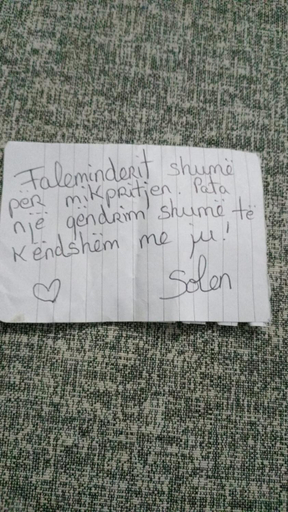 Faleminderit shumë
për mikpritjen. Pata
një qendrim shumë të
Këndshëm me ju!
♡ Solen